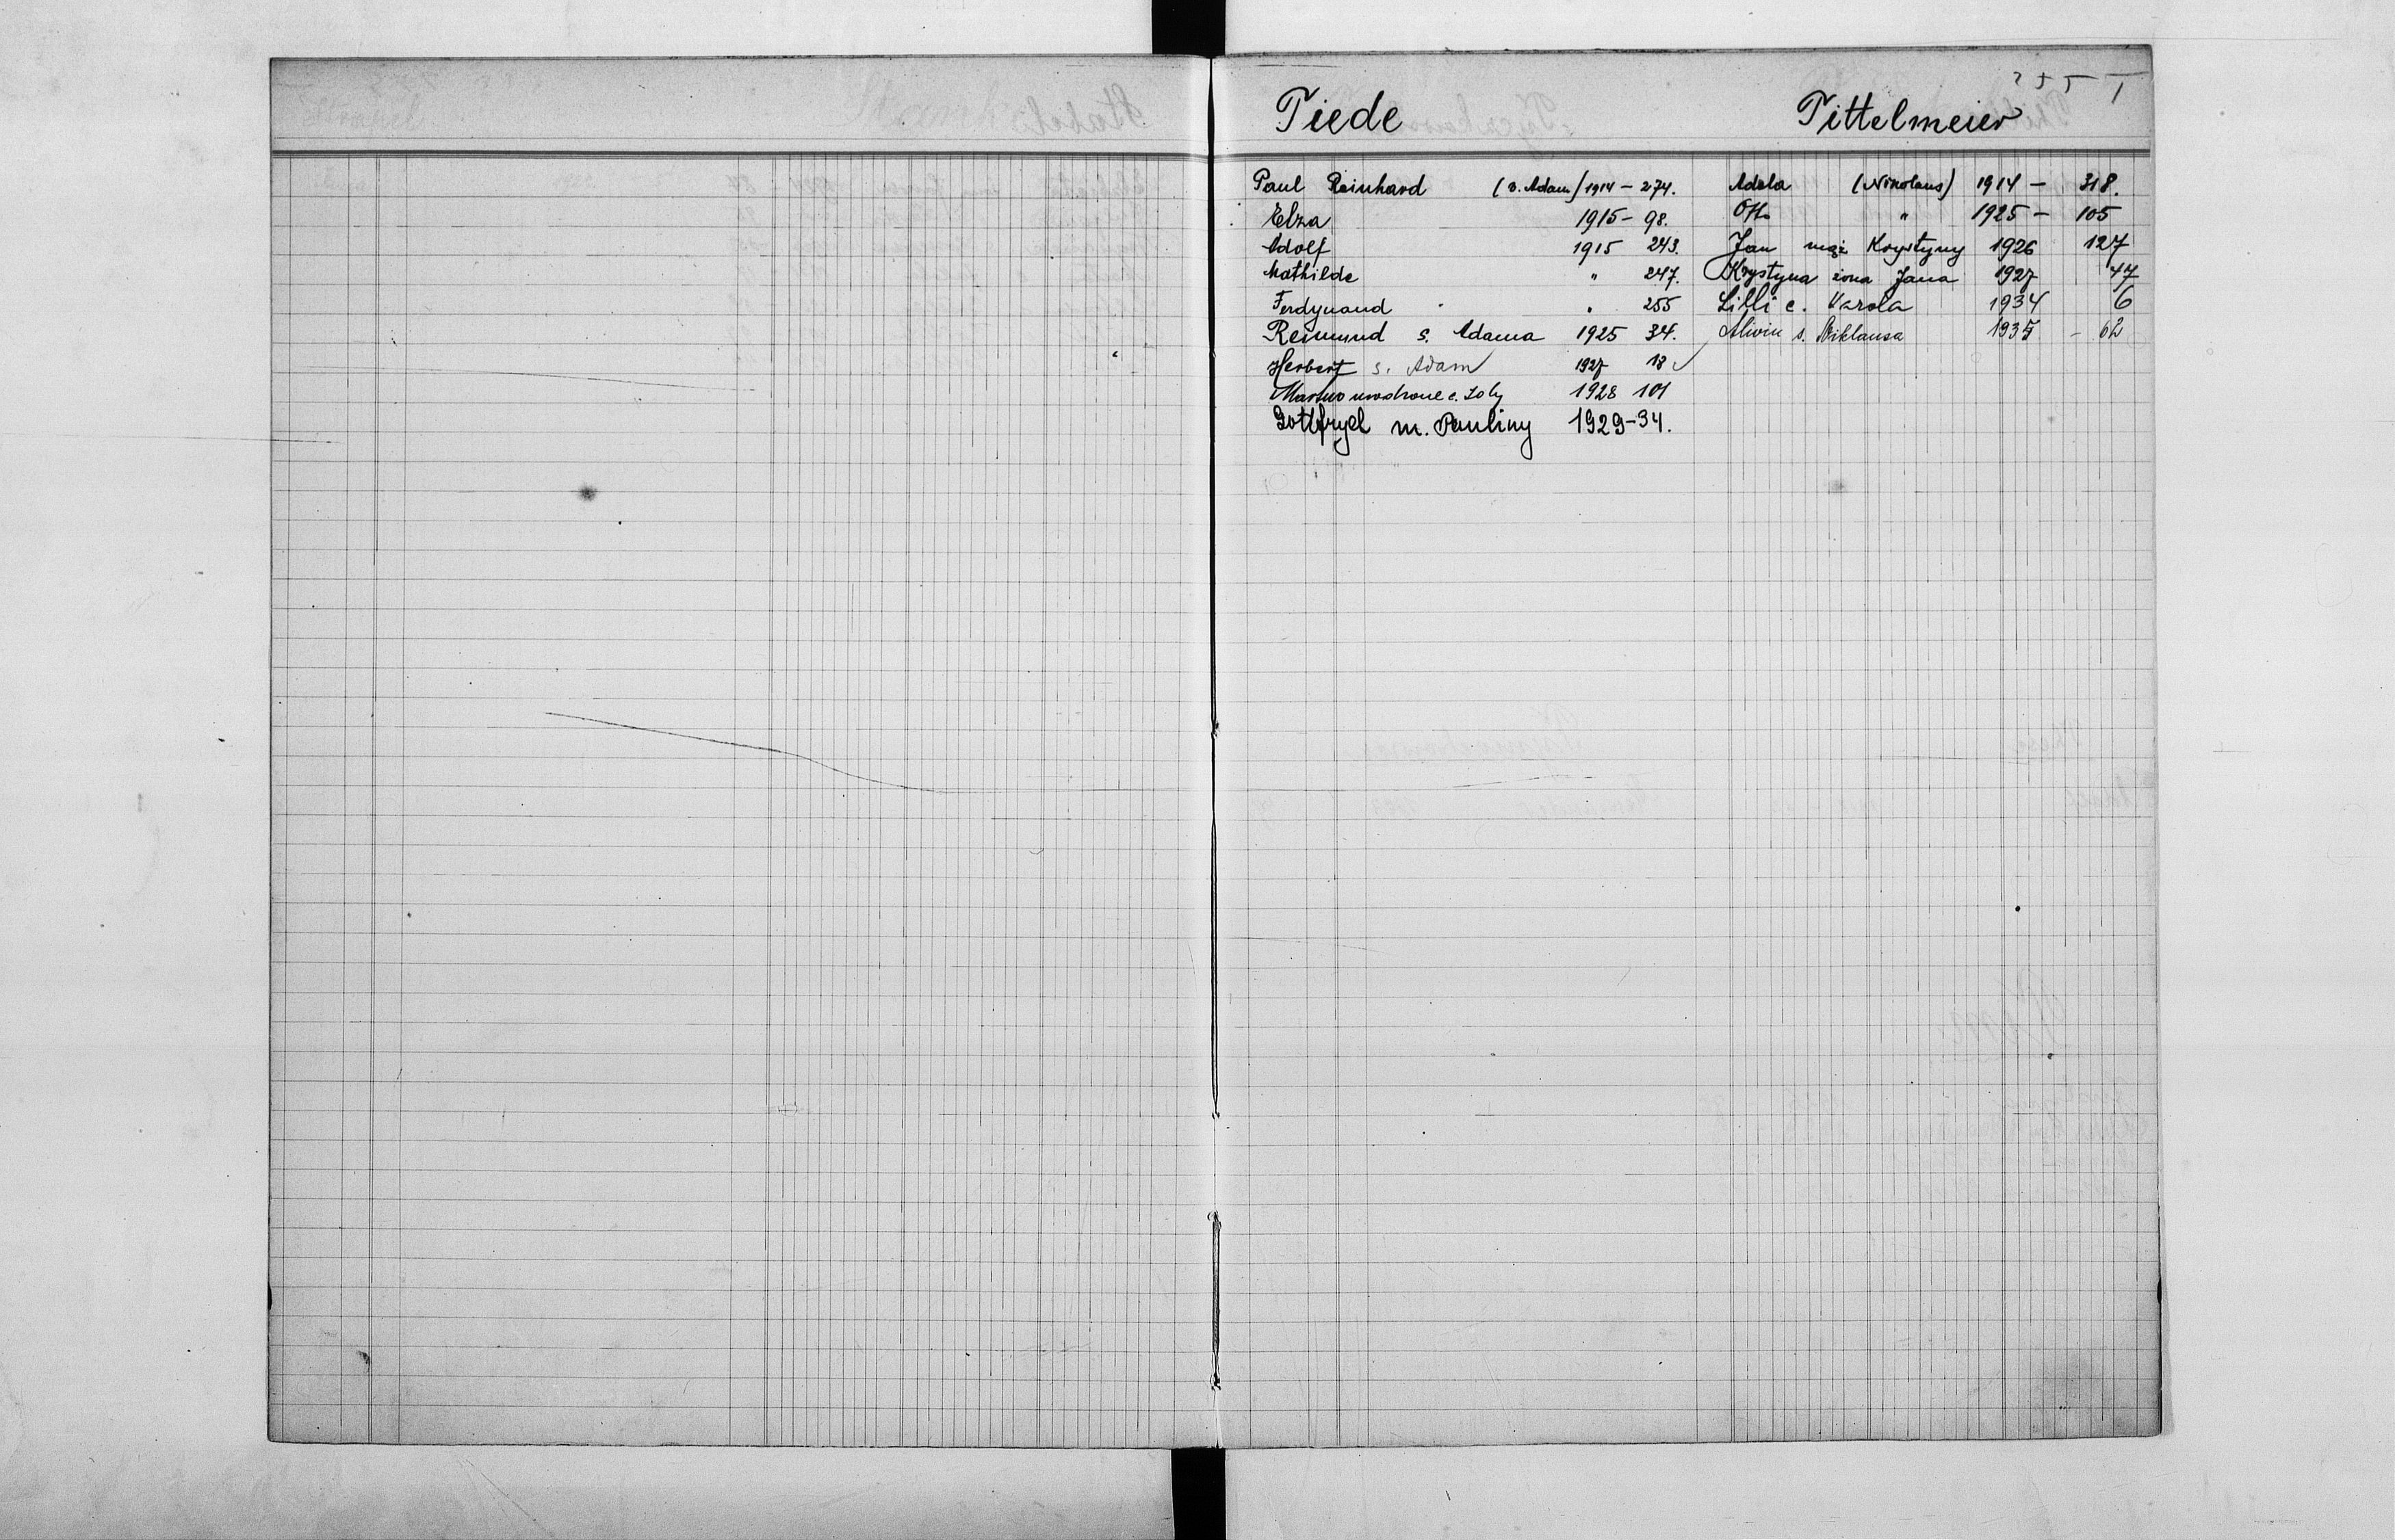 255 T
Tiede
Paul Reinhard (v. Adam) 1914 - 274.
Elza 1915 - 98.
Adolf 1915 243.
Mathilde " 247.
Ferdynand " 255
Reimund s. Adama 1925 34.
Herbert s. Adam 1927 18
Martwo urodzone c. Loly 1928 101
Gottfryd m. Pauliny 1929-34.
Tittelmeier
Adela (Nikolaus) 1914 - 318.
Otto " 1925 - 105
Jan mąż Krystyny 1926 127
Krystyna żona Jana 1927 47
Lilli c. Karola 1934 6
Alwin s. Niklausa 1935 - 62